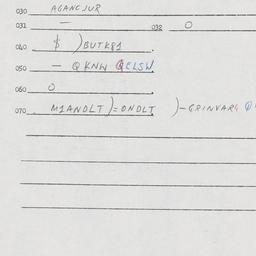 030 AGANCJUR
031 — 032 0
040 $ )BUTK81
050 — QKNW QELSW
060 0
070 M1ANDLT)=DNDLT )-GRINVAR